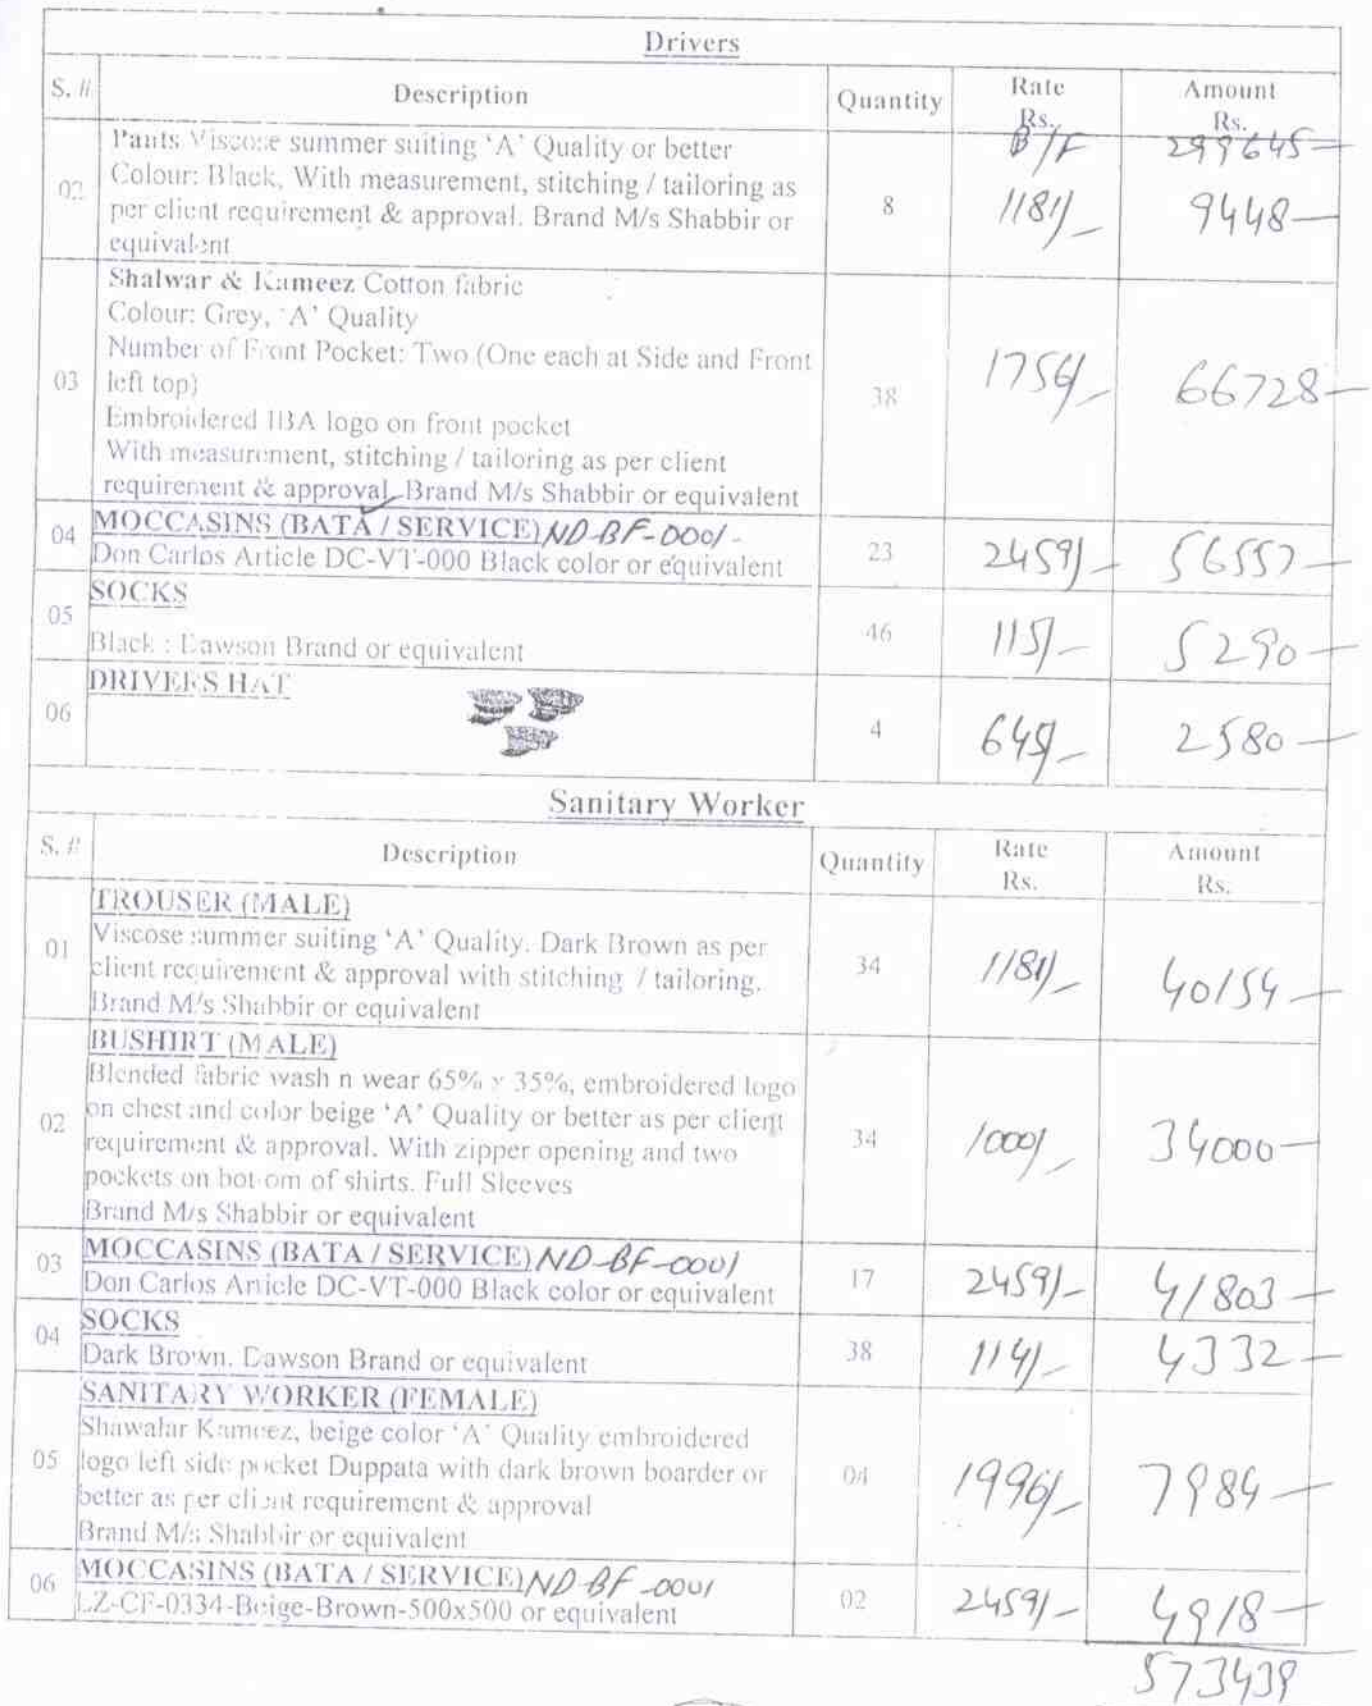 Drivers
S. # Description Quantity Rate Rs. Amount Rs.
B/F 299645—
02 Pants Viscose summer suiting 'A' Quality or better
Colour: Black, With measurement, stitching / tailoring as
per client requirement & approval. Brand M/s Shabbir or
equivalent
8 1181/- 9448—
03 Shalwar & Kameez Cotton fabric
Colour: Grey, 'A' Quality
Number of Front Pocket: Two (One each at Side and Front
left top)
Embroidered IBA logo on front pocket
With measurement, stitching / tailoring as per client
requirement & approval. Brand M/s Shabbir or equivalent
38 1756/- 66728—
04 MOCCASINS (BATA / SERVICE) ND-BF-0001-
Don Carlos Article DC-VT-000 Black color or equivalent
23 2459/- 56557—
05 SOCKS
Black : Dawson Brand or equivalent
46 115/- 5290—
06 DRIVERS HAT
4 645/- 2580—
Sanitary Worker
S. # Description Quantity Rate Rs. Amount Rs.
01 TROUSER (MALE)
Viscose summer suiting 'A' Quality. Dark Brown as per
client requirement & approval with stitching / tailoring.
Brand M/s Shabbir or equivalent
34 1181/- 40154—
02 BUSHIRT (MALE)
Blended fabric wash n wear 65% x 35%, embroidered logo
on chest and color beige 'A' Quality or better as per client
requirement & approval. With zipper opening and two
pockets on bottom of shirts. Full Sleeves
Brand M/s Shabbir or equivalent
34 1000/- 34000—
03 MOCCASINS (BATA / SERVICE) ND-BF-0001
Don Carlos Article DC-VT-000 Black color or equivalent
17 2459/- 41803—
04 SOCKS
Dark Brown. Dawson Brand or equivalent
38 114/- 4332—
05 SANITARY WORKER (FEMALE)
Shawalar Kameez, beige color 'A' Quality embroidered
logo left side pocket Duppata with dark brown boarder or
better as per client requirement & approval
Brand M/s Shabbir or equivalent
04 1996/- 7984—
06 MOCCASINS (BATA / SERVICE) ND-BF-0001
LZ-CF-0334-Beige-Brown-500x500 or equivalent
02 2459/- 4918—
573439